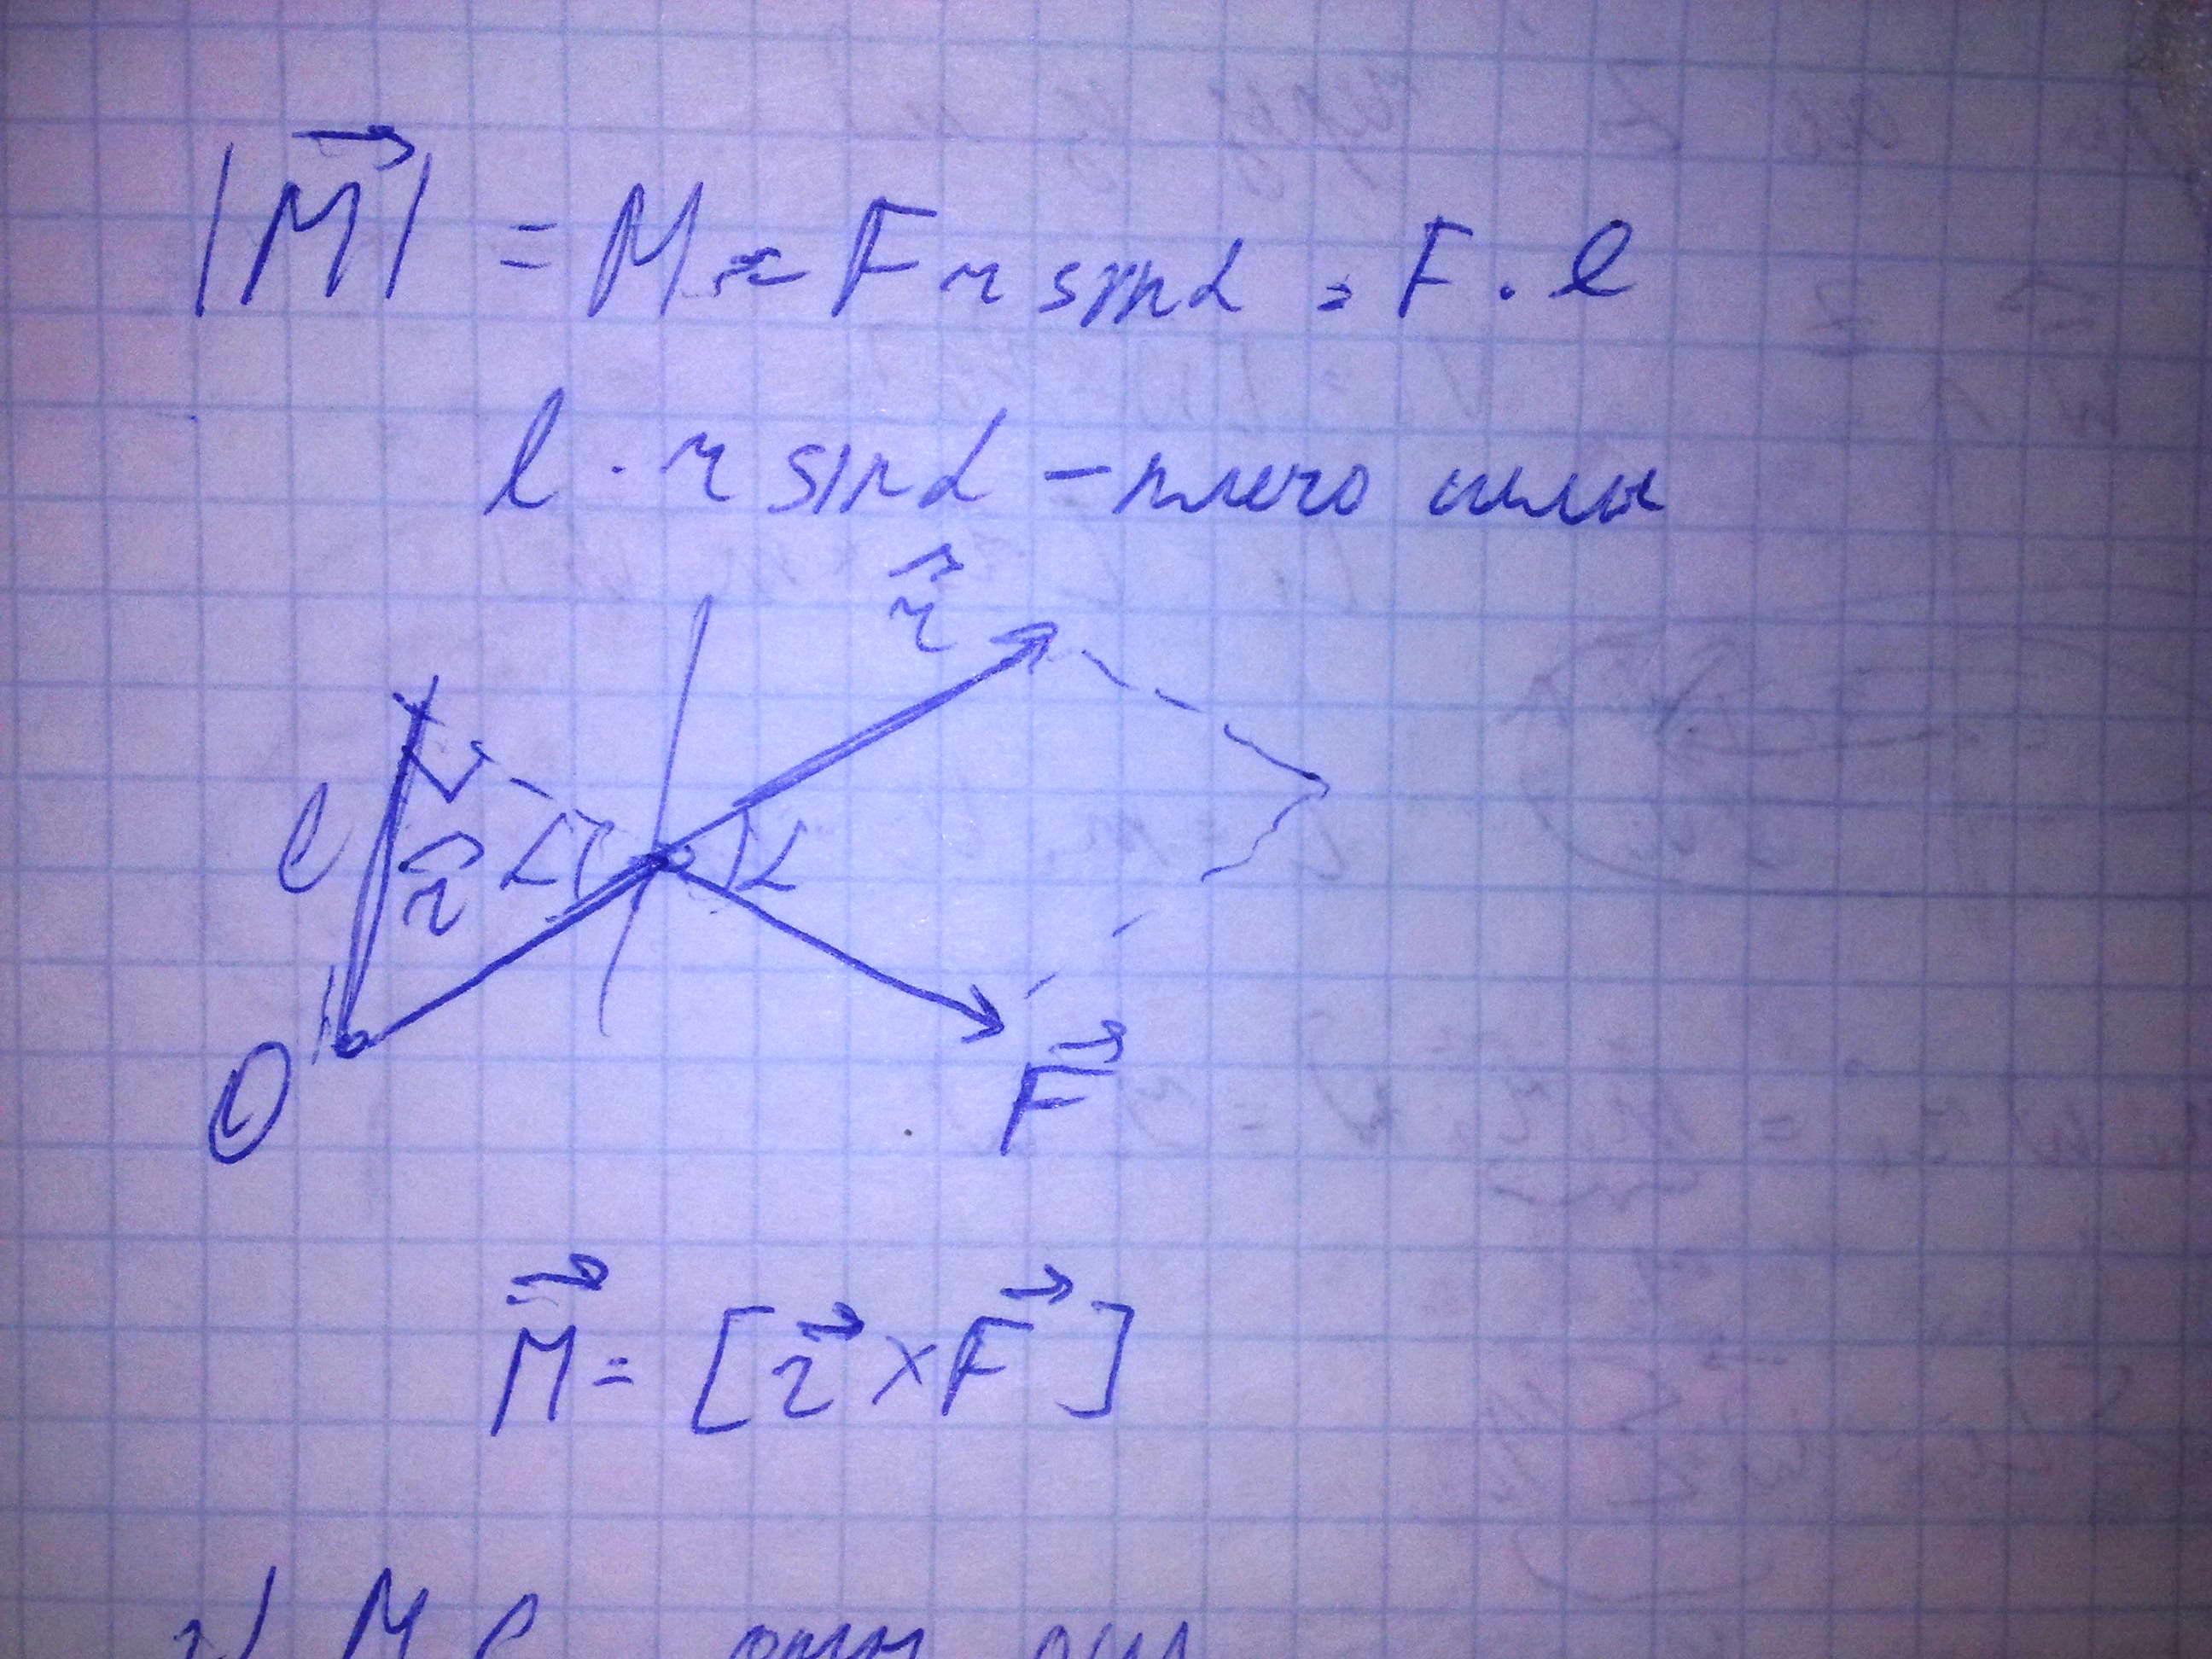 |M⃗| = M = F r sinα = F · l
l = r sinα – плечо силы
r⃗
l r⃗ α α
O
F⃗
M⃗ = [r⃗ × F⃗]